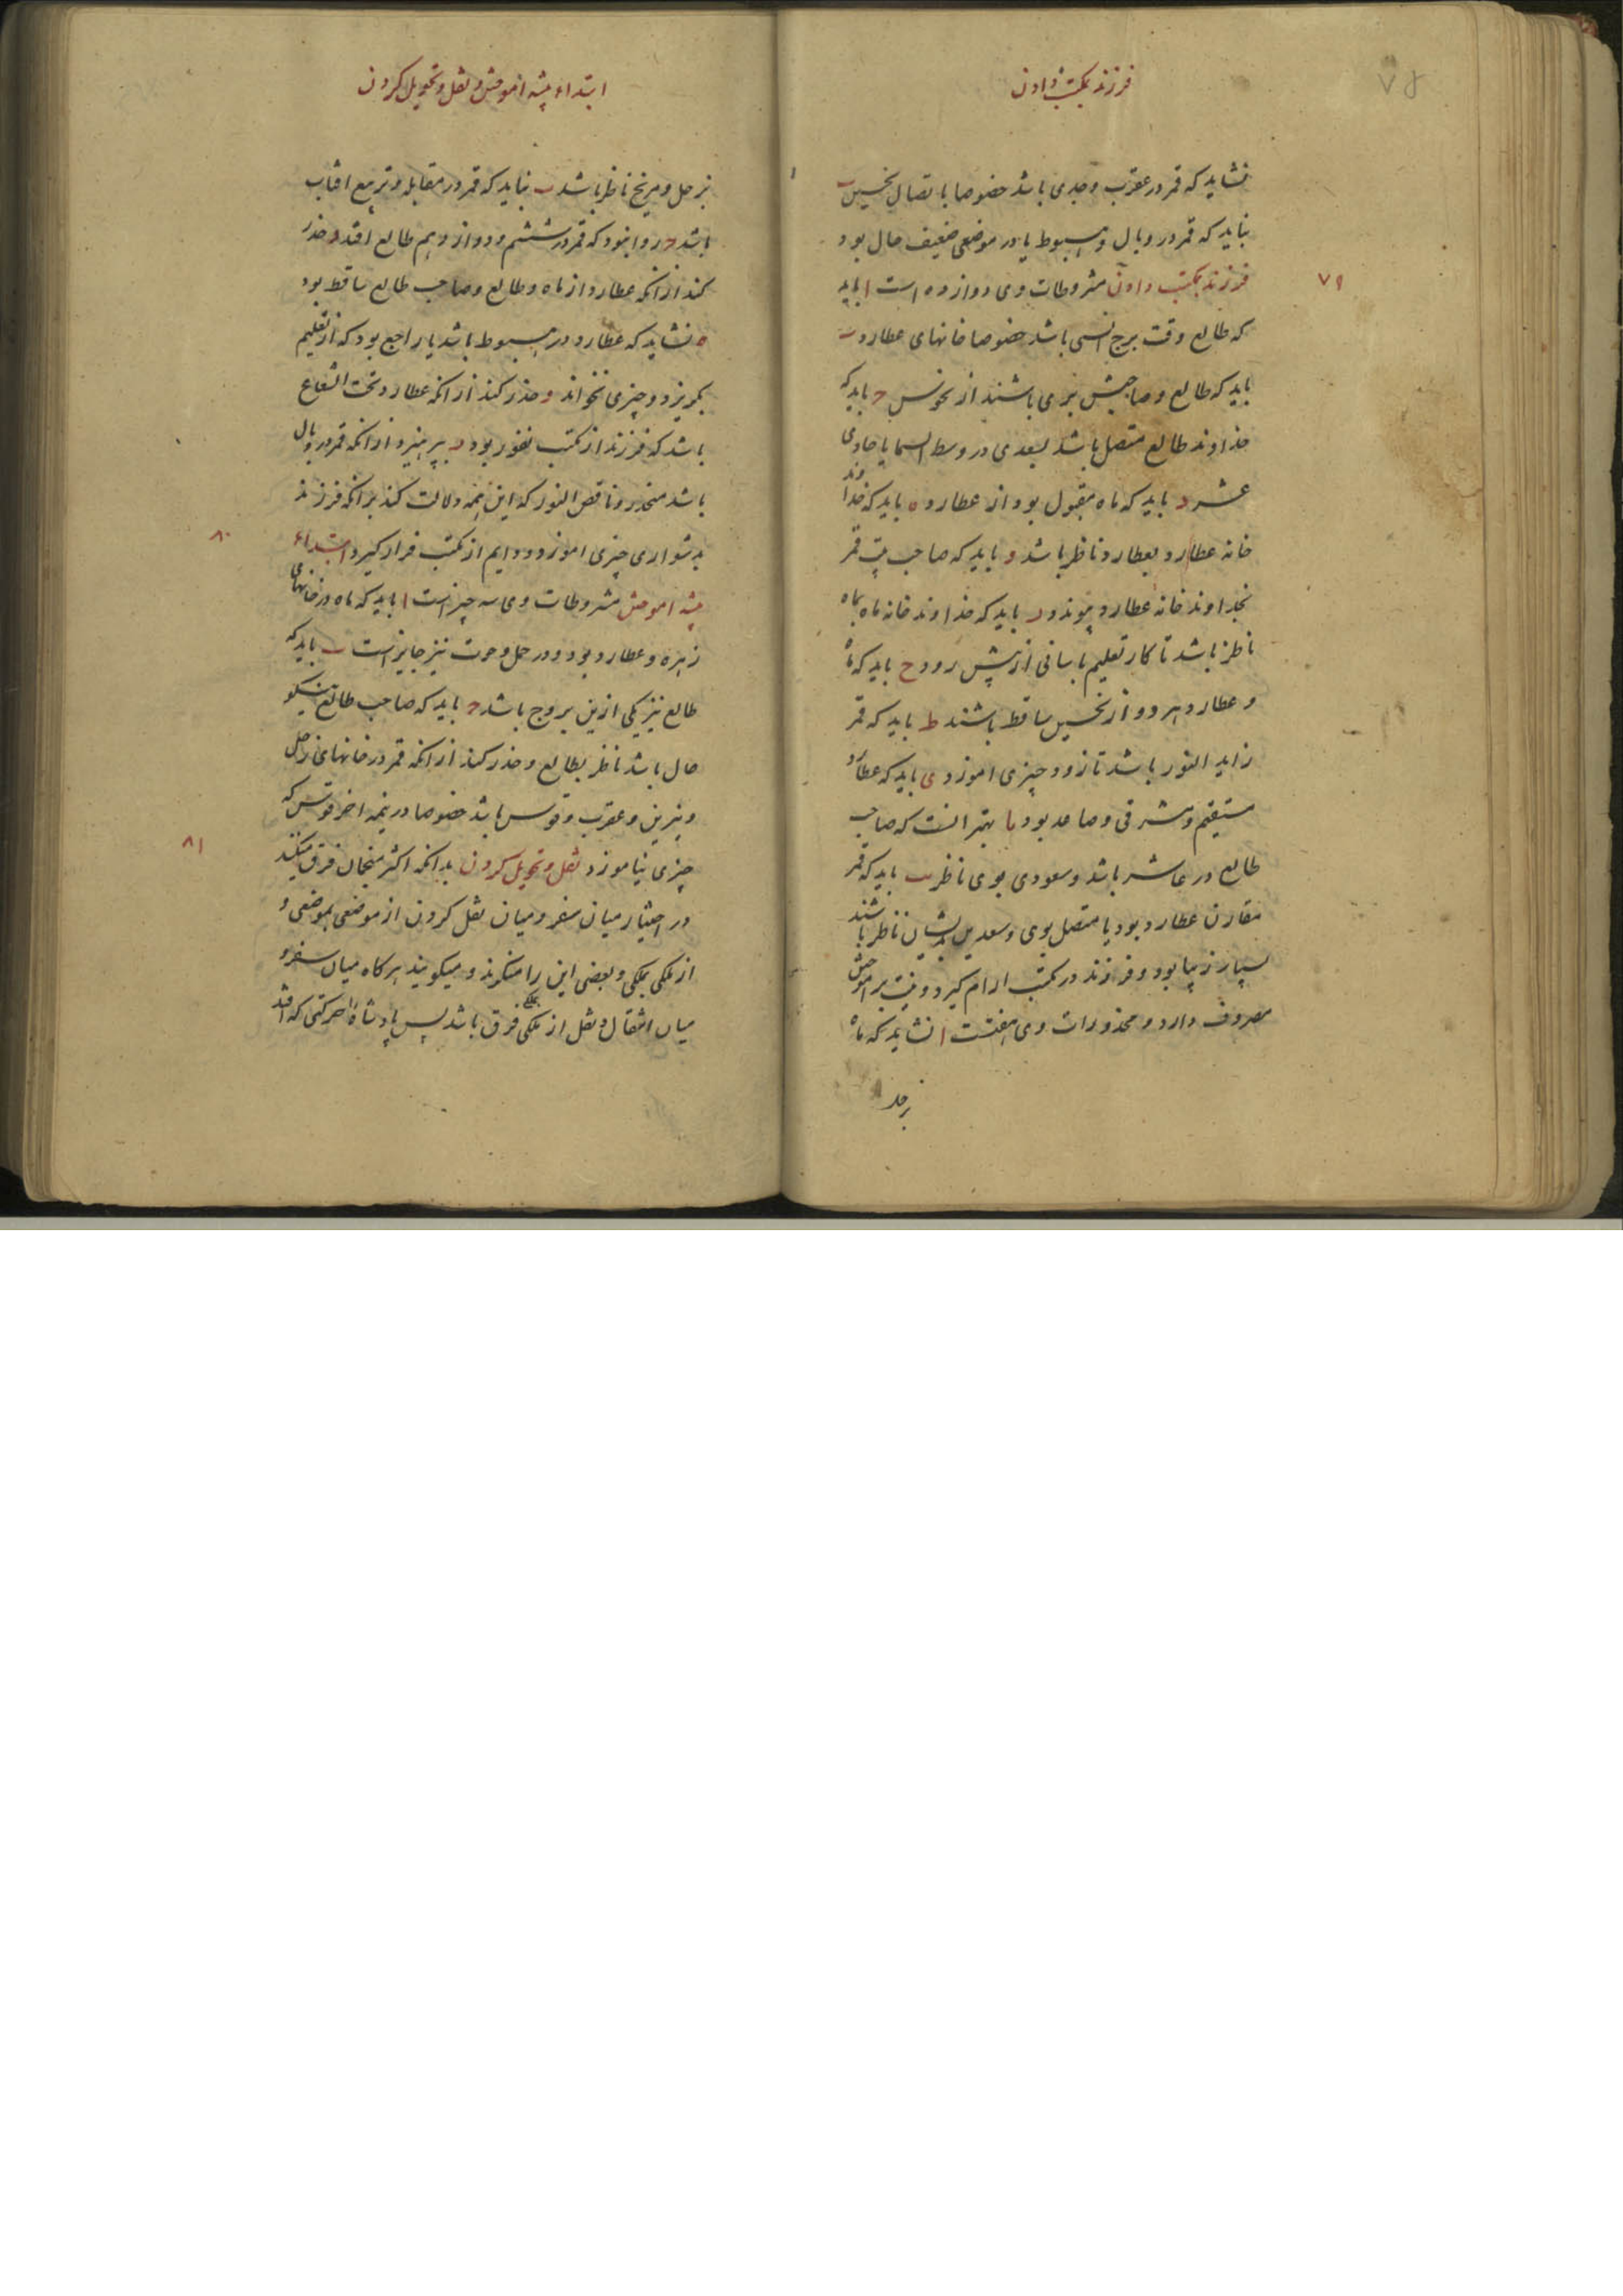 ۷۸
فرزند بمکتب دادن
نشاید که قمر در عقرب و جدی باشد خصوصا باتصال نحسین ب
نباید که قمر در وبال و هبوط یا در موضعی ضعیف حال بود
فرزند بمکتب دادن مشروطات وی دوازده است ا باید
۷۹
که طالع وقت برج انسی باشد خصوصا خانهای عطارد ب
باید که طالع و صاحبش بری باشند از نحوس ج باید که
خداوند طالع متصل باشد بسعدی در وسط السما یا حادی
عشر د باید که ماه مقبول بود از عطارد ه باید که خداوند
خانه عطارد بعطارد ناظر باشد و باید که صاحب بیت قمر
بخداوند خانه عطارد پیوندد ز باید که خداوند خانه ماه بماه
ناظر باشد تا کار تعلیم باسانی از پیش رود ح باید که ماه
و عطارد هر دو از نحسین ساقط باشند ط باید که قمر
زاید النور باشد تا زود چیزی اموزد ی باید که عطارد
مستقیم و مشرقی و صاعد بود یا بهتر انست که صاحب
طالع در عاشر باشد و سعودی بوی ناظر یب باید که قمر
مقارن عطارد بود یا متصل بوی و سعدین بدیشان ناظر باشند
بسیار زیبا بود و فرزند در مکتب ارام گیرد و نیت بر اموختن
مصروف دارد و محذورات وی هفتست ا نشاید که ماه
بزحل
ابتداء پیشه اموختن و نقل و تحویل کردن
بزحل و مریخ ناظر باشد ب نباید که قمر در مقابله و تربیع افتاب
باشد ج روا نبود که قمر در ششم و دوازدهم طالع افتد د حذر
کند از انکه عطارد از ماه و طالع و صاحب طالع ساقط بود
ه نشاید که عطارد در هبوط باشد یا راجع بود که از تعلیم
بگریزد و چیزی نخواند و حذر کند از انکه عطارد تحت الشعاع
باشد که فرزند از مکتب نفور بود ز بپرهیزد از انکه قمر در وبال
باشد منحدر و ناقص النور که این همه دلالت کند بر انکه فرزند
بدشواری چیزی اموزد و دایم از مکتب فرار گیرد ابتداء
۸۰
پیشه اموختن مشروطات وی سه چیز است ا باید که ماه در خانهای
زهره و عطارد بود و در حمل و حوت نیز جایز است ب باید که
طالع نیز یکی ازین بروج باشد ج باید که صاحب طالع نیکو
حال باشد ناظر بطالع و حذر کند از انکه قمر در خانهای زحل
و نیرین و عقرب و قوس باشد خصوصا در نیمه اخر قوس که
چیزی نیاموزد نقل و تحویل کردن بدانکه اکثر منجمان فرق میکنند
۸۱
در اختیار میان سفر و میان نقل کردن از موضعی بموضعی و
از ملکی بملکی و بعضی این را منکرند و میگویند هرگاه میان سفر و
میان انتقال و نقل از ملکی بملکی فرق باشد پس پادشاه را حرکتی که افتد